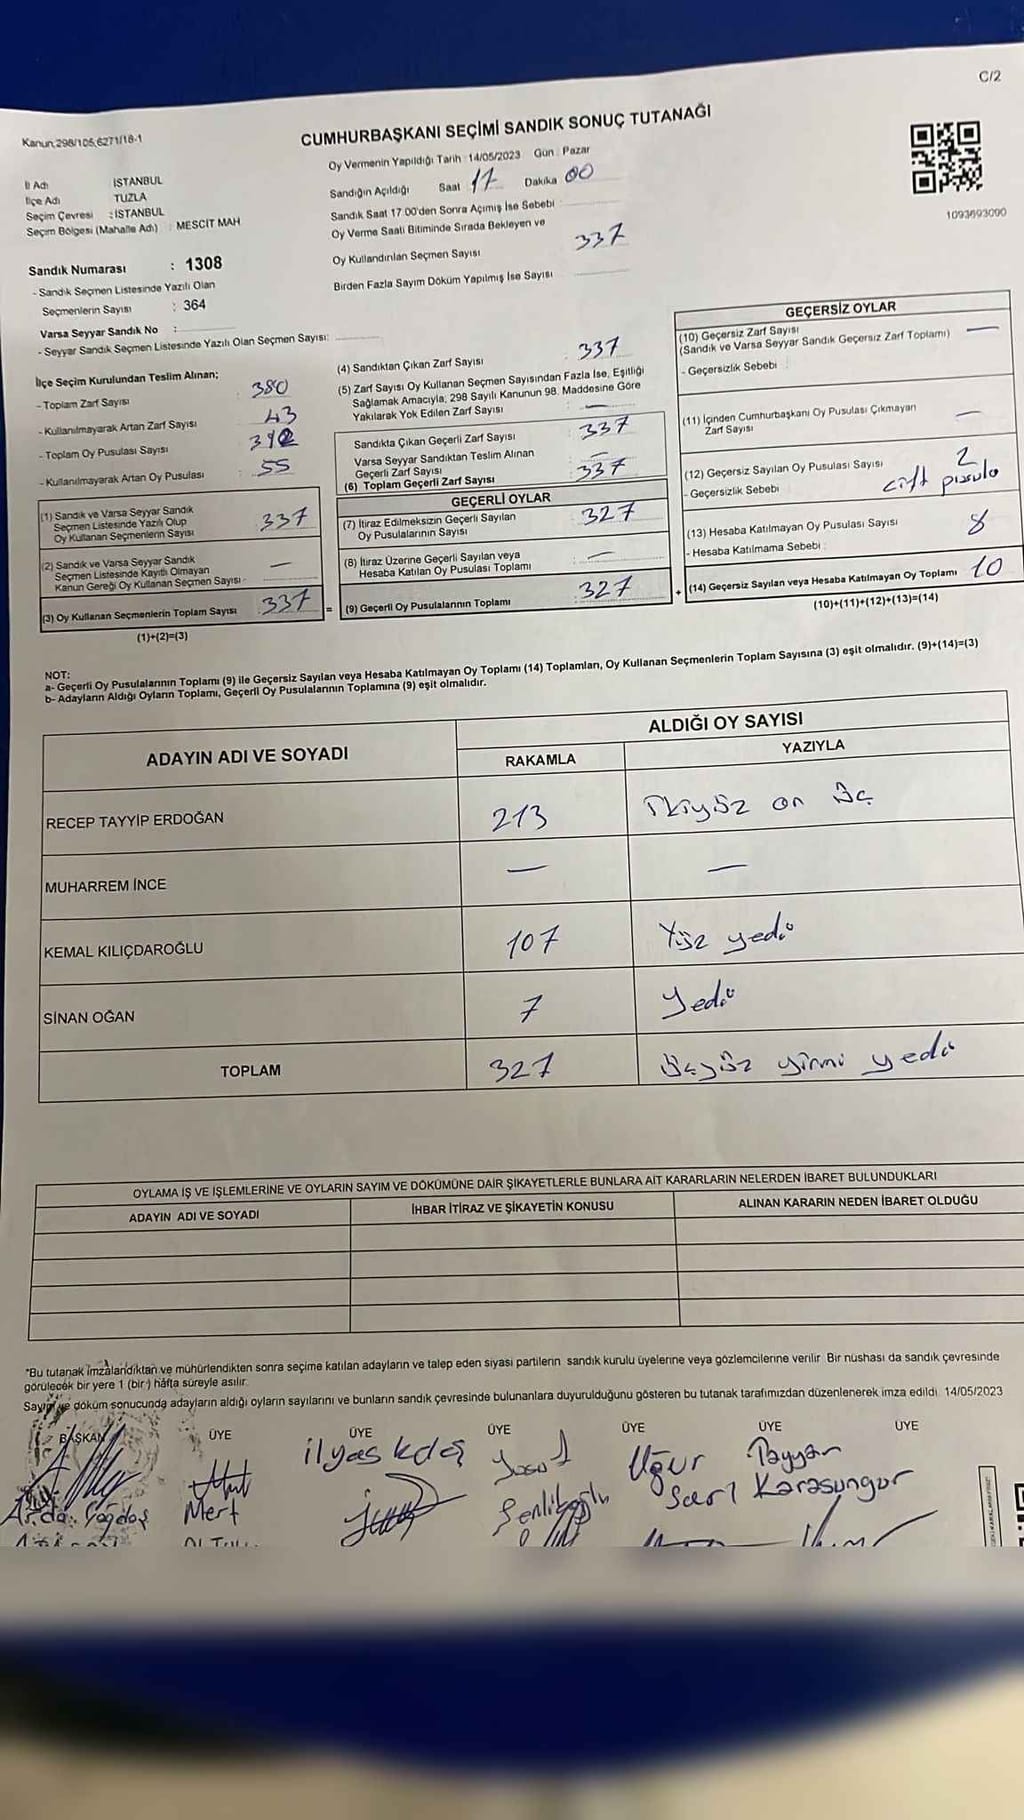 C/2
Kanun;298/105,6271/18-1
CUMHURBAŞKANI SEÇİMİ SANDIK SONUÇ TUTANAĞI
Oy Vermenin Yapıldığı Tarih : 14/05/2023 Gün : Pazar
İl Adı İSTANBUL
İlçe Adı TUZLA
Seçim Çevresi : İSTANBUL
Seçim Bölgesi (Mahalle Adı) : MESCİT MAH
Sandığın Açıldığı Saat 17 Dakika 00
Sandık Saat 17.00'den Sonra Açımış İse Sebebi :
Oy Verme Saati Bitiminde Sırada Bekleyen ve
Oy Kullandırılan Seçmen Sayısı 337
Birden Fazla Sayım Döküm Yapılmış İse Sayısı
1093693090
Sandık Numarası : 1308
- Sandık Seçmen Listesinde Yazılı Olan
Seçmenlerin Sayısı : 364
Varsa Seyyar Sandık No :
- Seyyar Sandık Seçmen Listesinde Yazılı Olan Seçmen Sayısı:
İlçe Seçim Kurulundan Teslim Alınan;
- Toplam Zarf Sayısı 380
- Kullanılmayarak Artan Zarf Sayısı 43
- Toplam Oy Pusulası Sayısı
- Kullanılmayarak Artan Oy Pusulası 55
(1) Sandık ve Varsa Seyyar Sandık
Seçmen Listesinde Yazılı Olup
Oy Kullanan Seçmenlerin Sayısı 337
(2) Sandık ve Varsa Seyyar Sandık
Seçmen Listesinde Kayıtlı Olmayan
Kanun Gereği Oy Kullanan Seçmen Sayısı - —
(3) Oy Kullanan Seçmenlerin Toplam Sayısı 337 =
(1)+(2)=(3)
(4) Sandıktan Çıkan Zarf Sayısı 337
(5) Zarf Sayısı Oy Kullanan Seçmen Sayısından Fazla İse, Eşitliği
Sağlamak Amacıyla, 298 Sayılı Kanunun 98. Maddesine Göre
Yakılarak Yok Edilen Zarf Sayısı : —
Sandıkta Çıkan Geçerli Zarf Sayısı 337
Varsa Seyyar Sandıktan Teslim Alınan
Geçerli Zarf Sayısı —
(6) Toplam Geçerli Zarf Sayısı 337
GEÇERLİ OYLAR
(7) İtiraz Edilmeksizin Geçerli Sayılan
Oy Pusulalarının Sayısı 327
(8) İtiraz Üzerine Geçerli Sayılan veya
Hesaba Katılan Oy Pusulası Toplamı —
(9) Geçerli Oy Pusulalarının Toplamı 327 +
GEÇERSİZ OYLAR
(10) Geçersiz Zarf Sayısı —
(Sandık ve Varsa Seyyar Sandık Geçersiz Zarf Toplamı)
- Geçersizlik Sebebi :
(11) İçinden Cumhurbaşkanı Oy Pusulası Çıkmayan
Zarf Sayısı —
(12) Geçersiz Sayılan Oy Pusulası Sayısı 2
- Geçersizlik Sebebi çift pusula
(13) Hesaba Katılmayan Oy Pusulası Sayısı 8
- Hesaba Katılmama Sebebi :
(14) Geçersiz Sayılan veya Hesaba Katılmayan Oy Toplamı 10
(10)+(11)+(12)+(13)=(14)
NOT:
a- Geçerli Oy Pusulalarının Toplamı (9) ile Geçersiz Sayılan veya Hesaba Katılmayan Oy Toplamı (14) Toplamları, Oy Kullanan Seçmenlerin Toplam Sayısına (3) eşit olmalıdır. (9)+(14)=(3)
b- Adayların Aldığı Oyların Toplamı, Geçerli Oy Pusulalarının Toplamına (9) eşit olmalıdır.
ADAYIN ADI VE SOYADI
ALDIĞI OY SAYISI
RAKAMLA YAZIYLA
RECEP TAYYİP ERDOĞAN 213 ikiyüz on üç
MUHARREM İNCE — —
KEMAL KILIÇDAROĞLU 107 Yüz yedi
SİNAN OĞAN 7 Yedi
TOPLAM 327 üçyüz yirmi yedi
OYLAMA İŞ VE İŞLEMLERİNE VE OYLARIN SAYIM VE DÖKÜMÜNE DAİR ŞİKAYETLERLE BUNLARA AİT KARARLARIN NELERDEN İBARET BULUNDUKLARI
ADAYIN ADI VE SOYADI İHBAR İTİRAZ VE ŞİKAYETİN KONUSU ALINAN KARARIN NEDEN İBARET OLDUĞU
*Bu tutanak imzalandıktan ve mühürlendikten sonra seçime katılan adayların ve talep eden siyasi partilerin sandık kurulu üyelerine veya gözlemcilerine verilir. Bir nüshası da sandık çevresinde
görülecek bir yere 1 (bir ) hafta süreyle asılır.
Sayım ve döküm sonucunda adayların aldığı oyların sayılarını ve bunların sandık çevresinde bulunanlara duyurulduğunu gösteren bu tutanak tarafımızdan düzenlenerek imza edildi. 14/05/2023
BAŞKAN ÜYE ÜYE ÜYE ÜYE ÜYE ÜYE
Arda Mert ilyas Yusuf Şenlikoğlu Uğur Sarı Tayyar Karasungur